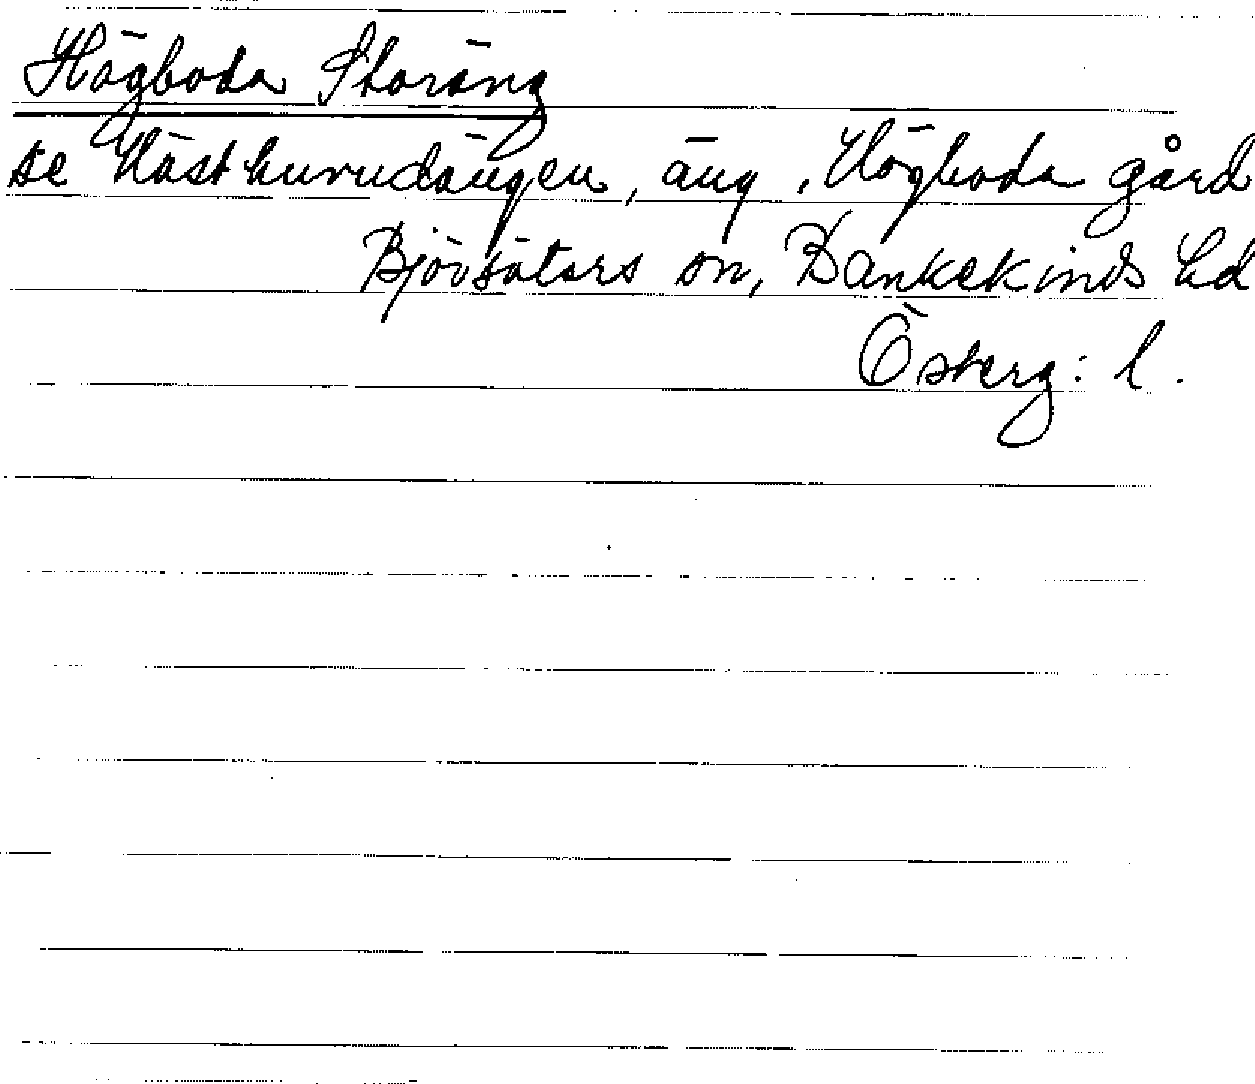 Högboda Storäng
se Hästhuvudängen, äng, Högboda gård
Björsäters sn, Bankekinds hd
Österg: l.